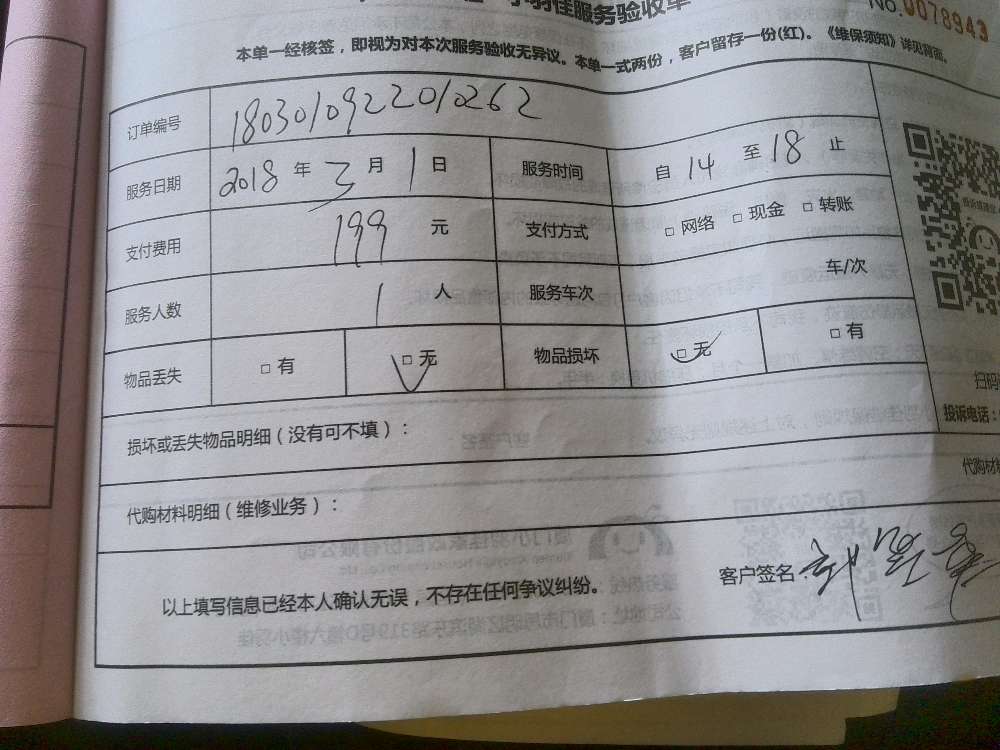 羽佳服务验收单
No.0078943
本单一经核签，即视为对本次服务验收无异议。本单一式两份，客户留存一份(红)。《维保须知》详见背面。
订单编号 1803010922010262
服务日期 2018 年 3 月 1 日 服务时间 自 14 至 18 止
支付费用 199 元 支付方式 □ 网络 □ 现金 □ 转账
服务人数 1 人 服务车次 车/次
物品丢失 □ 有 □ 无 物品损坏 □ 无 □ 有
扫码
投诉电话：
损坏或丢失物品明细（没有可不填）：
代购材料
代购材料明细（维修业务）：
客户签名：
以上填写信息已经本人确认无误，不存在任何争议纠纷。